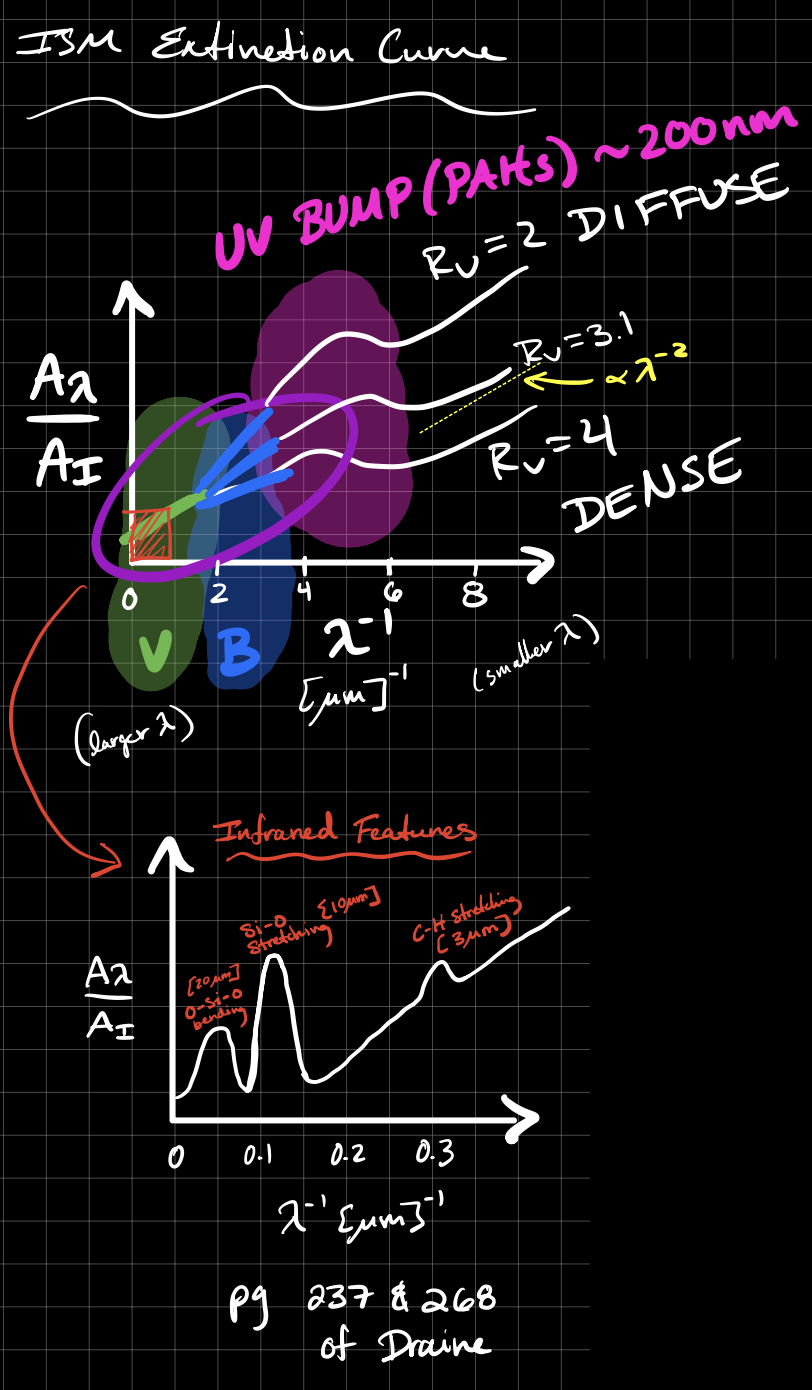 ISM Extinction Curve
UV BUMP (PAHs) ~200nm
Rv=2 DIFFUSE
Rv=3.1
∝ λ⁻²
Rv=4
DENSE
Aλ
AI
0 2 4 6 8
V B
λ⁻¹
[μm]⁻¹
(smaller λ)
(larger λ)
Infrared Features
Si-O [10μm]
Stretching
C-H Stretching
(3μm)
[20μm]
O-Si-O
bending
Aλ
AI
0 0.1 0.2 0.3
λ⁻¹ [μm]⁻¹
pg 237 & 268
of Draine